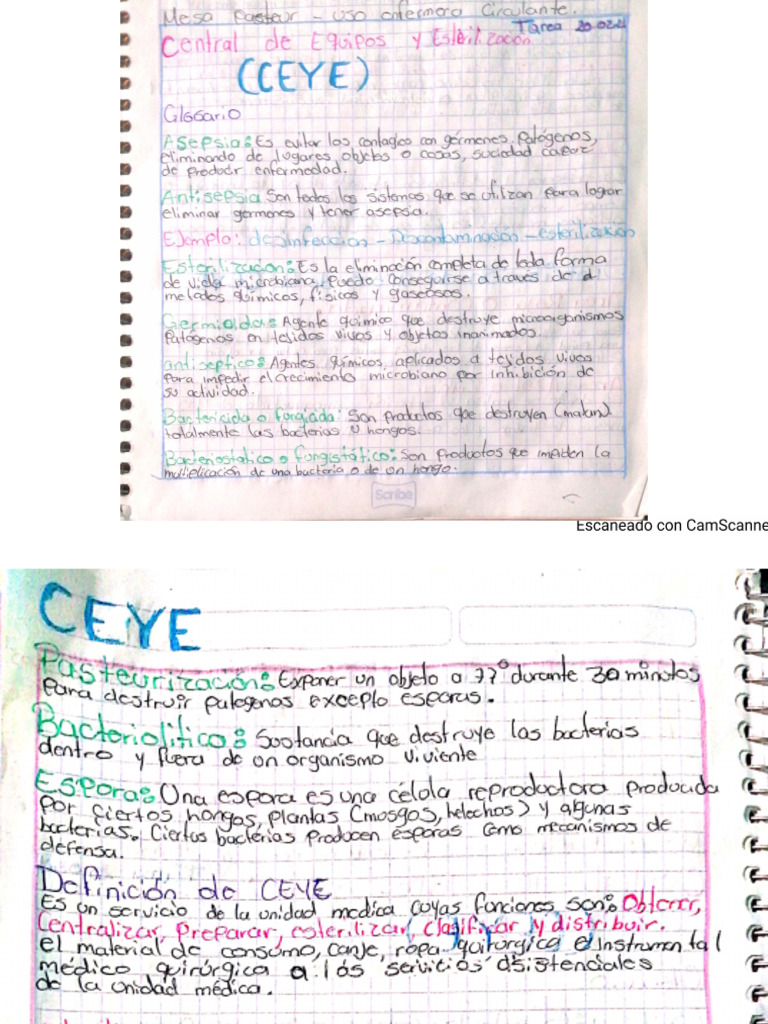 Mesa Pasteur - uso enfermera Circulante.
Tarea 20.02.21
Central de Equipos y Esterilización
(CEYE)
Glosario
Asepsia: Es evitar los contagios con gérmenes patógenos,
eliminando de lugares, objetos o cosas, suciedad capaz
de producir enfermedad.
Antisepsia Son todos los sistemas que se utilizan para lograr
eliminar germenes y tener asepsia.
Ejemplo: desinfección - Descontaminación - esterilización
Esterilización: Es la eliminación completa de toda forma
de vida microbiana, puede conseguirse a través de
metodos químicos, físicos y gaseosos.
Germicida: Agente quimico que destruye microorganismos
Patogenos en tejidos vivos y objetos inanimados.
antiseptico: Agentes químicos aplicados a tejidos vivos
para impedir el crecimiento microbiano por inhibición de
su actividad.
Bactericida o fungicida: Son productos que destruyen (matan)
totalmente las bacterias u hongos.
Bacteriostatico o fungistático: Son productos que impiden la
multiplicación de una bacteria o de un hongo.
Scribe
Escaneado con CamScanne
CEYE
Pasteurización: Exponer un objeto a 77° durante 30 minutos
para destruir patogenos excepto esporas.
Bacteriolitico: Sustancia que destruye las bacterias
dentro y fuera de un organismo viviente
Espora: Una espora es una célula reproductora producida
por ciertos hongos, plantas (musgos, helechos) y algunas
bacterias. Ciertas bacterias producen esporas como mecanismos de
defensa.
Definición de CEYE
Es un servicio de la unidad medica cuyas funciones son: Obtener,
Centralizar, preparar, esterilizar, clasificar y distribuir.
el material de consumo, canje, ropa quirurgica e Instrumental
médico quirúrgica a los servicios asistenciales
de la unidad médica.